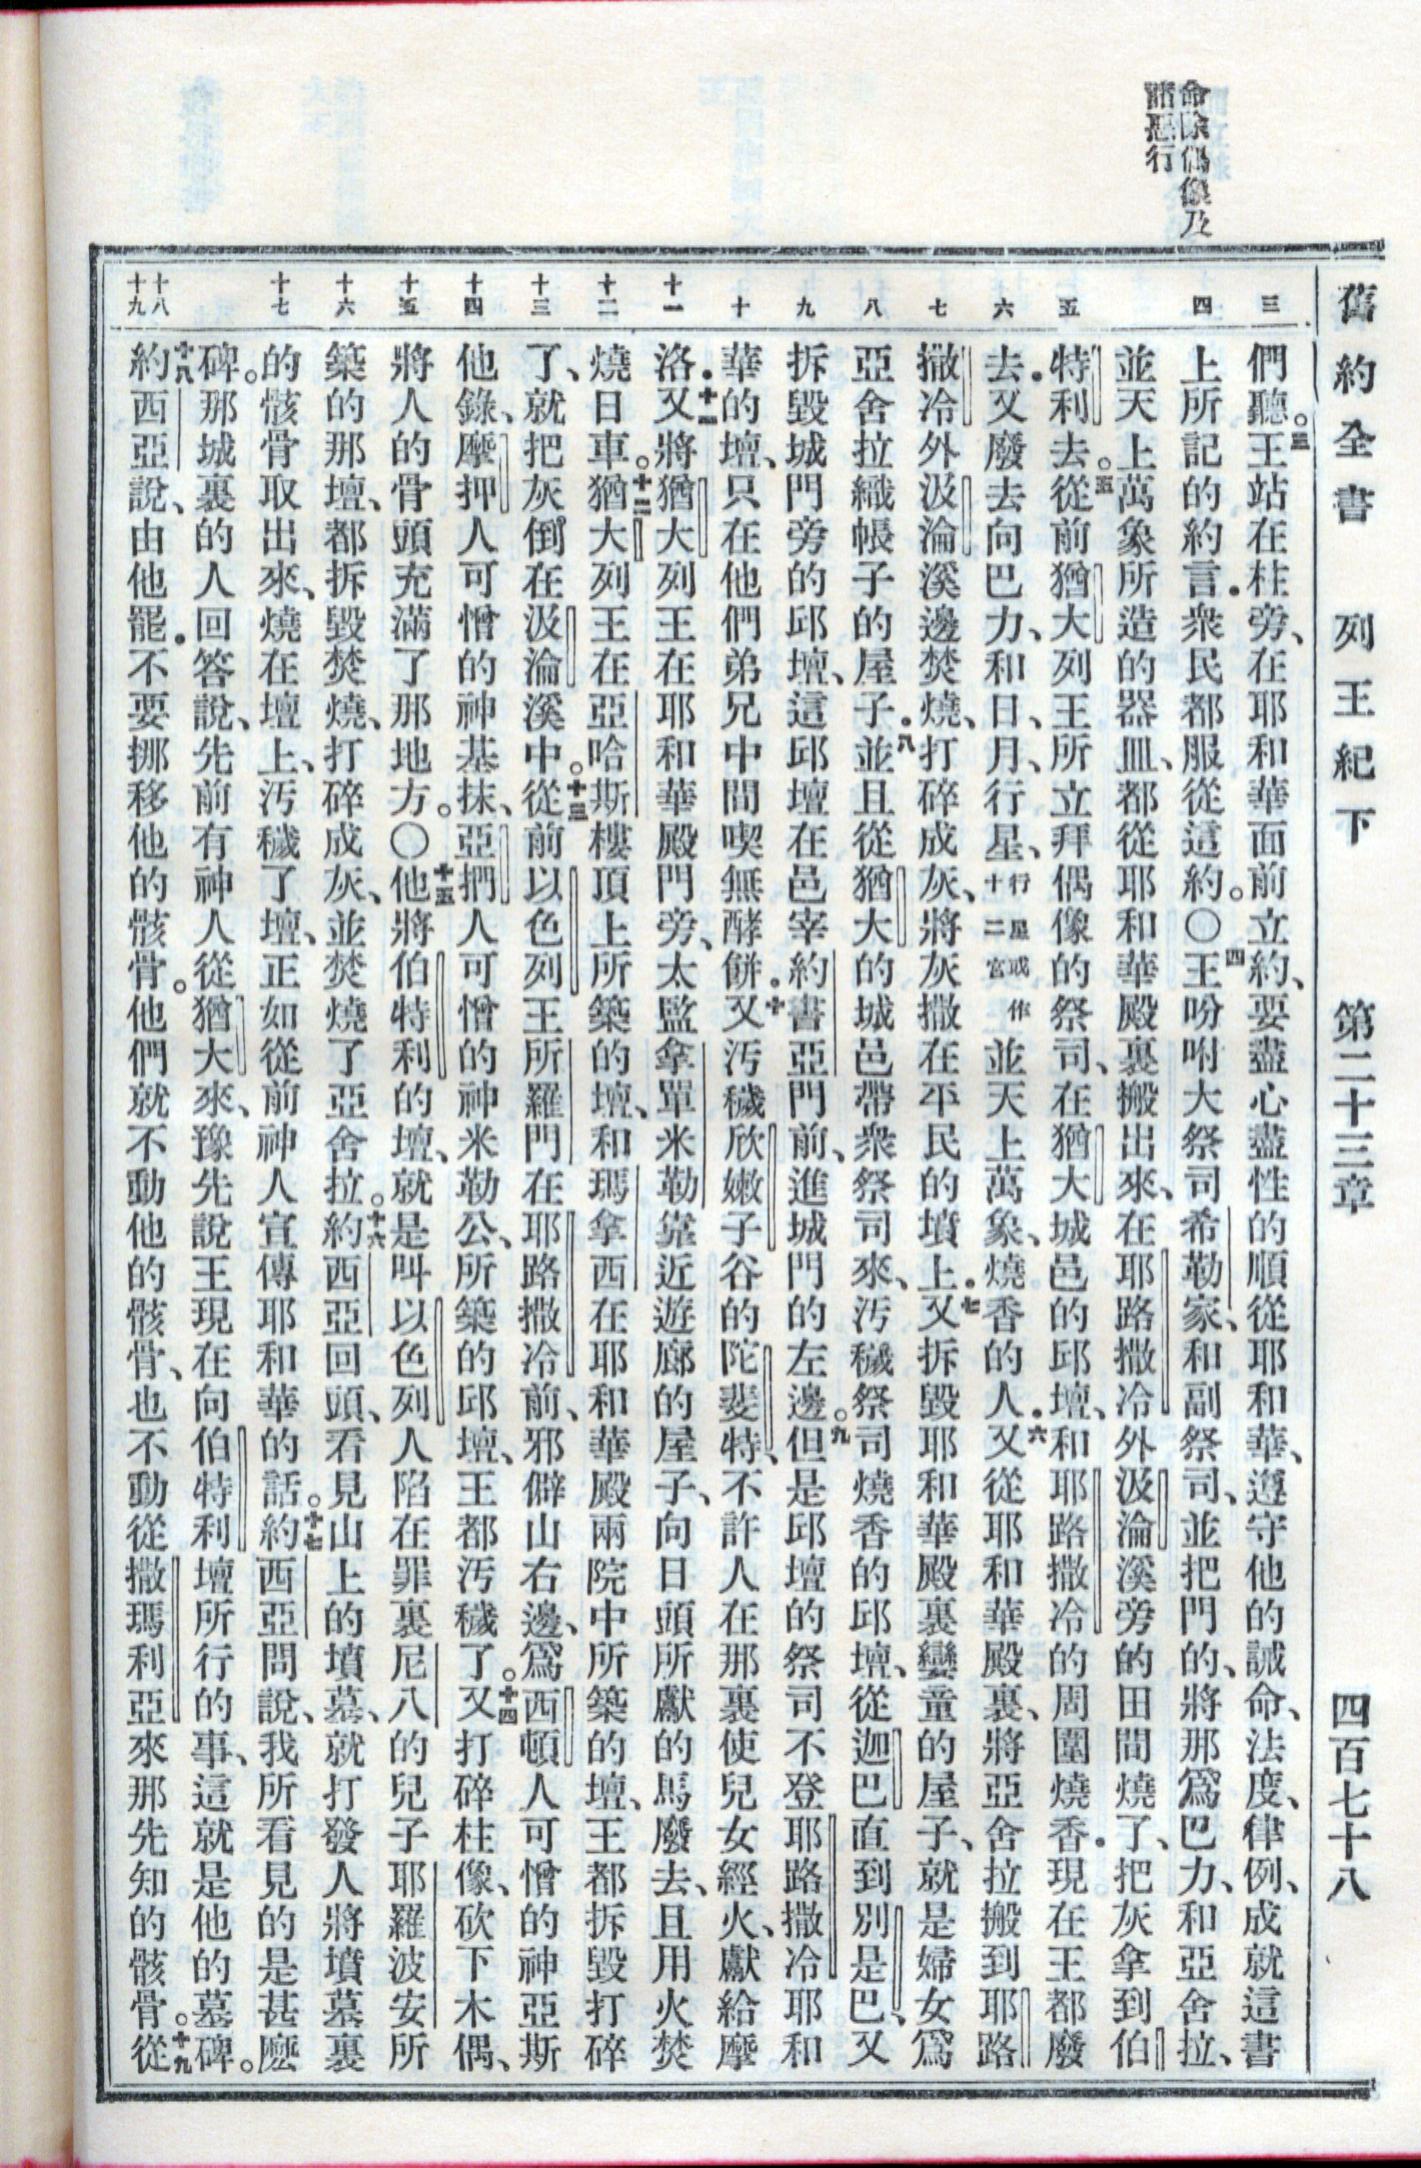 命除偶像及
諸惡行
舊約全書 列王紀下 第二十三章 四百七十八
三 四 五 六 七 八 九 十 十一 十二 十三 十四 十五 十六 十七 十八 十九
們聽。三王站在柱旁、在耶和華面前立約、要盡心盡性的順從耶和華、遵守他的誡命、法度、律例、成就這書
上所記的約言．衆民都服從這約。〇四王吩咐大祭司希勒家、和副祭司、並把門的、將那爲巴力、和亞舍拉、
並天上萬象所造的器皿、都從耶和華殿裏搬出來、在耶路撒冷外汲淪溪旁的田間燒了、把灰拿到伯
特利去。五從前猶大列王所立拜偶像的祭司、在猶大城邑的邱壇、和耶路撒冷的周圍燒香．現在王都廢
去．又廢去向巴力、和日、月、行星、行星或作十二宮並天上萬象、燒香的人．六又從耶和華殿裏、將亞舍拉搬到耶路
撒冷外汲淪溪邊焚燒、打碎成灰、將灰撒在平民的墳上．七又拆毀耶和華殿裏孌童的屋子、就是婦女爲
亞舍拉織帳子的屋子．八並且從猶大的城邑帶衆祭司來、汚穢祭司燒香的邱壇、從迦巴直到別是巴、又
拆毀城門旁的邱壇、這邱壇在邑宰約書亞門前、進城門的左邊。九但是邱壇的祭司不登耶路撒冷耶和
華的壇、只在他們弟兄中間喫無酵餅．十又汚穢欣嫩子谷的陀斐特、不許人在那裏使兒女經火、獻給摩
洛．十一又將猶大列王在耶和華殿門旁、太監拿單米勒靠近遊廊的屋子、向日頭所獻的馬廢去、且用火焚
燒日車。十二猶大列王在亞哈斯樓頂上所築的壇、和瑪拿西在耶和華殿兩院中所築的壇、王都拆毀打碎
了、就把灰倒在汲淪溪中。十三從前以色列王所羅門在耶路撒冷前、邪僻山右邊、爲西頓人可憎的神亞斯
他錄、摩押人可憎的神基抹、亞捫人可憎的神米勒公、所築的邱壇、王都汚穢了。十四又打碎柱像、砍下木偶、
將人的骨頭充滿了那地方。〇十五他將伯特利的壇、就是叫以色列人陷在罪裏尼八的兒子耶羅波安所
築的那壇、都拆毀焚燒、打碎成灰、並焚燒了亞舍拉。十六約西亞回頭、看見山上的墳墓、就打發人將墳墓裏
的骸骨取出來、燒在壇上、汚穢了壇、正如從前神人宣傳耶和華的話。十七約西亞問說、我所看見的是甚麽
碑。那城裏的人回答說、先前有神人從猶大來、豫先說王現在向伯特利壇所行的事、這就是他的墓碑。
十八約西亞說、由他罷．不要挪移他的骸骨。他們就不動他的骸骨、也不動從撒瑪利亞來那先知的骸骨。十九從